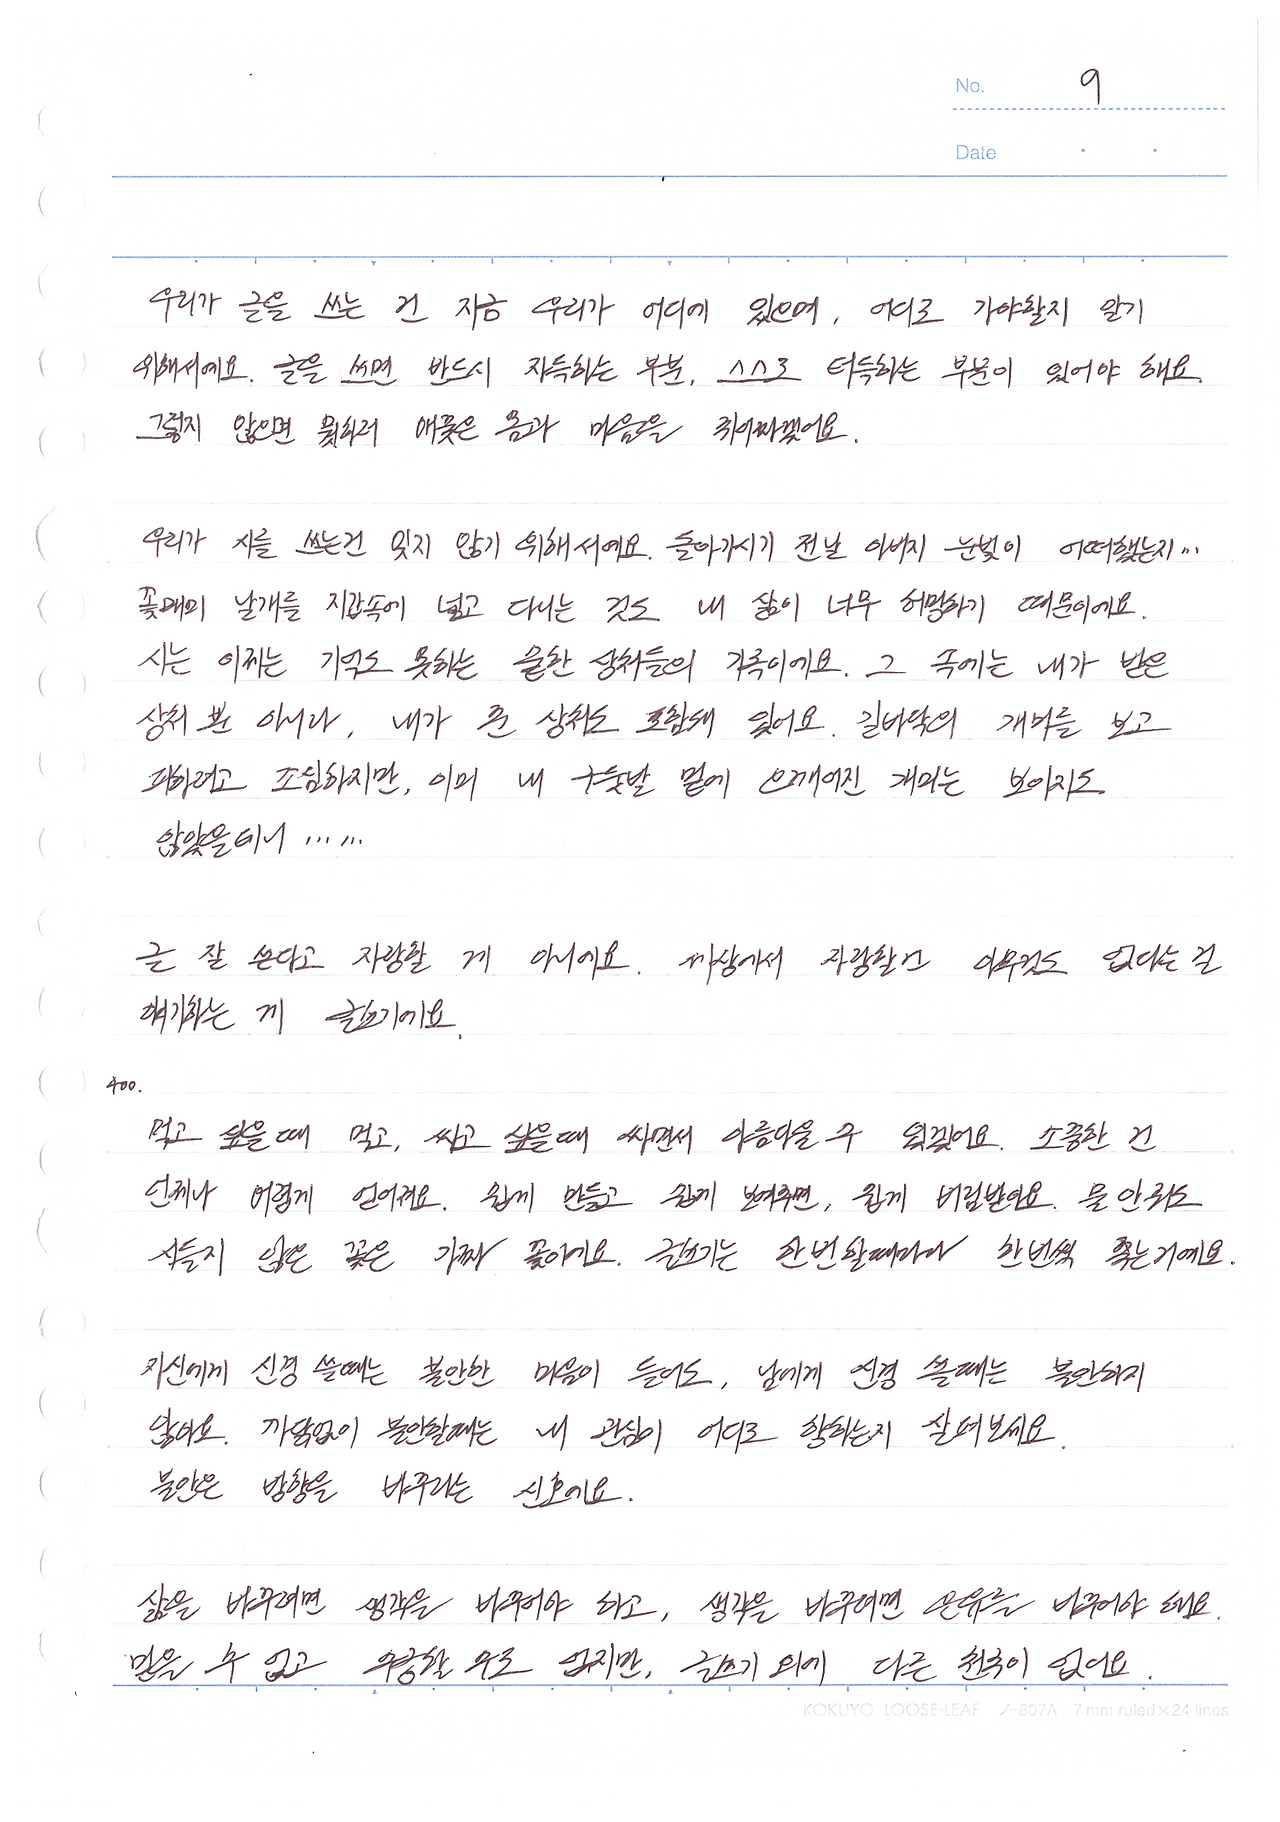 No. 9
Date
우리가 글을 쓰는 건 지금 우리가 어디에 있으며, 어디로 가야할지 알기
위해서예요. 글을 쓰면 반드시 자득하는 부분, 스스로 터득하는 부분이 있어야 해요.
그렇지 않으면 뭣하러 애꿎은 몸과 마음을 쥐어짜겠어요.
우리가 시를 쓰는건 잊지 않기 위해서예요. 돌아가시기 전날 아버지 눈빛이 어떠했는지…
꽃매미 날개를 지갑속에 넣고 다니는 것도 내 삶이 너무 허망하기 때문이에요.
시는 이제는 기억도 못하는 숱한 상처들의 기록이에요. 그 속에는 내가 받은
상처 뿐 아니라, 내가 준 상처도 포함돼 있어요. 길바닥의 개미를 보고
피하려고 조심하지만, 이미 내 구둣발 밑에 으깨어진 개미는 보이지도
않았을테니 ……
글 잘 쓴다고 자랑할 게 아니에요. 세상에서 자랑할건 아무것도 없다는 걸
얘기하는 게 글쓰기예요.
400.
먹고 싶을때 먹고, 싸고 싶을때 싸면서 아름다울 수 없겠어요. 소중한 건
언제나 어렵게 얻어져요. 쉽게 만들고 쉽게 보여주면, 쉽게 버림받아요. 물 안 줘도
시들지 않은 꽃은 가짜 꽃이에요. 글쓰기는 한번 할때마다 한번씩 죽는거예요.
자신에게 신경 쓸때는 불안한 마음이 들어도, 남에게 신경 쓸때는 불안하지
않아요. 까닭없이 불안할때는 내 관심이 어디로 향하는지 살펴보세요.
불안은 방향을 바꾸라는 신호예요.
삶을 바꾸려면 생각을 바꾸어야 하고, 생각을 바꾸려면 은유를 바꾸어야 해요.
믿을 수 없고 수긍할 수도 없지만, 글쓰기 외에 다른 천국이 없어요.
KOKUYO LOOSE-LEAF ノ-807A 7 mm ruled×24 lines